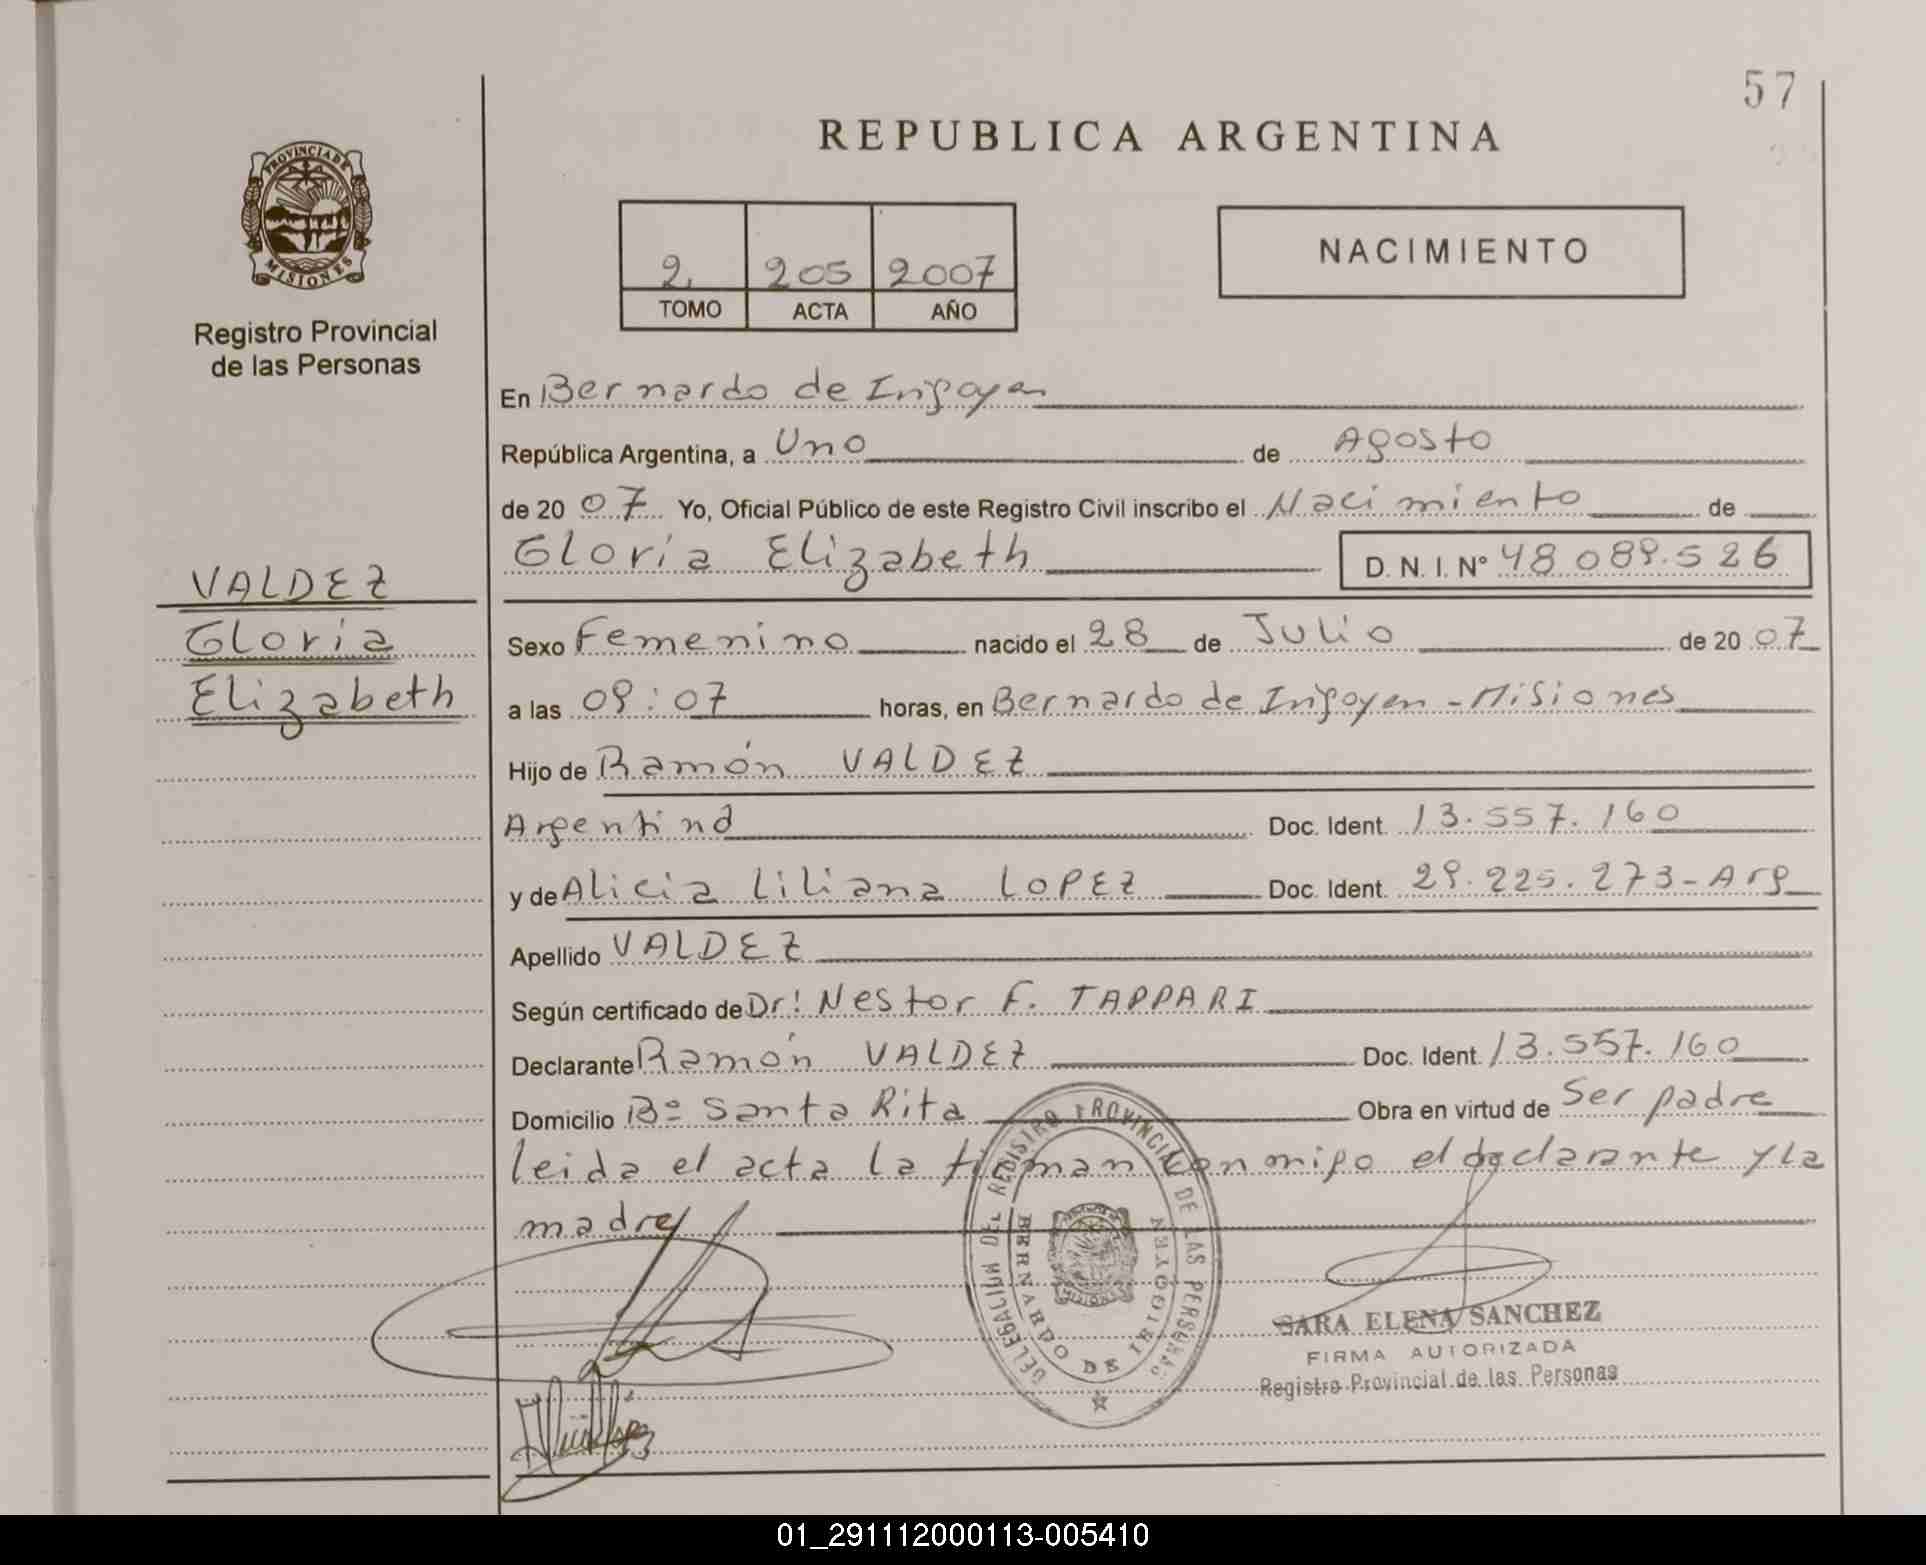 57
REPUBLICA ARGENTINA
PROVINCIA DE
MISIONES
Registro Provincial
de las Personas
2. 205 2007
TOMO ACTA AÑO
NACIMIENTO
En Bernardo de Irigoyen
República Argentina, a Uno de Agosto
de 20 07 Yo, Oficial Público de este Registro Civil inscribo el Nacimiento de
Gloria Elizabeth D. N. I. N° 48 089.526
VALDEZ
Gloria
Elizabeth
Sexo Femenino nacido el 28 de Julio de 20 07
a las 09:07 horas, en Bernardo de Irigoyen - Misiones
Hijo de Ramón VALDEZ
Argentina Doc. Ident. 13.557.160
y de Alicia Liliana LOPEZ Doc. Ident. 29.225.273 - Arg
Apellido VALDEZ
Según certificado de Dr: Nestor F. TAPPARI
Declarante Ramón VALDEZ Doc. Ident. 13.557.160
Domicilio Bº Santa Rita Obra en virtud de Ser padre
leida el acta la firman conmigo el declarante y la
madre
DELEGACION DEL REGISTRO PROVINCIAL DE LAS PERSONAS
BERNARDO DE IRIGOYEN
MISIONES
SARA ELENA SANCHEZ
FIRMA AUTORIZADA
Registro Provincial de las Personas
01_291112000113-005410